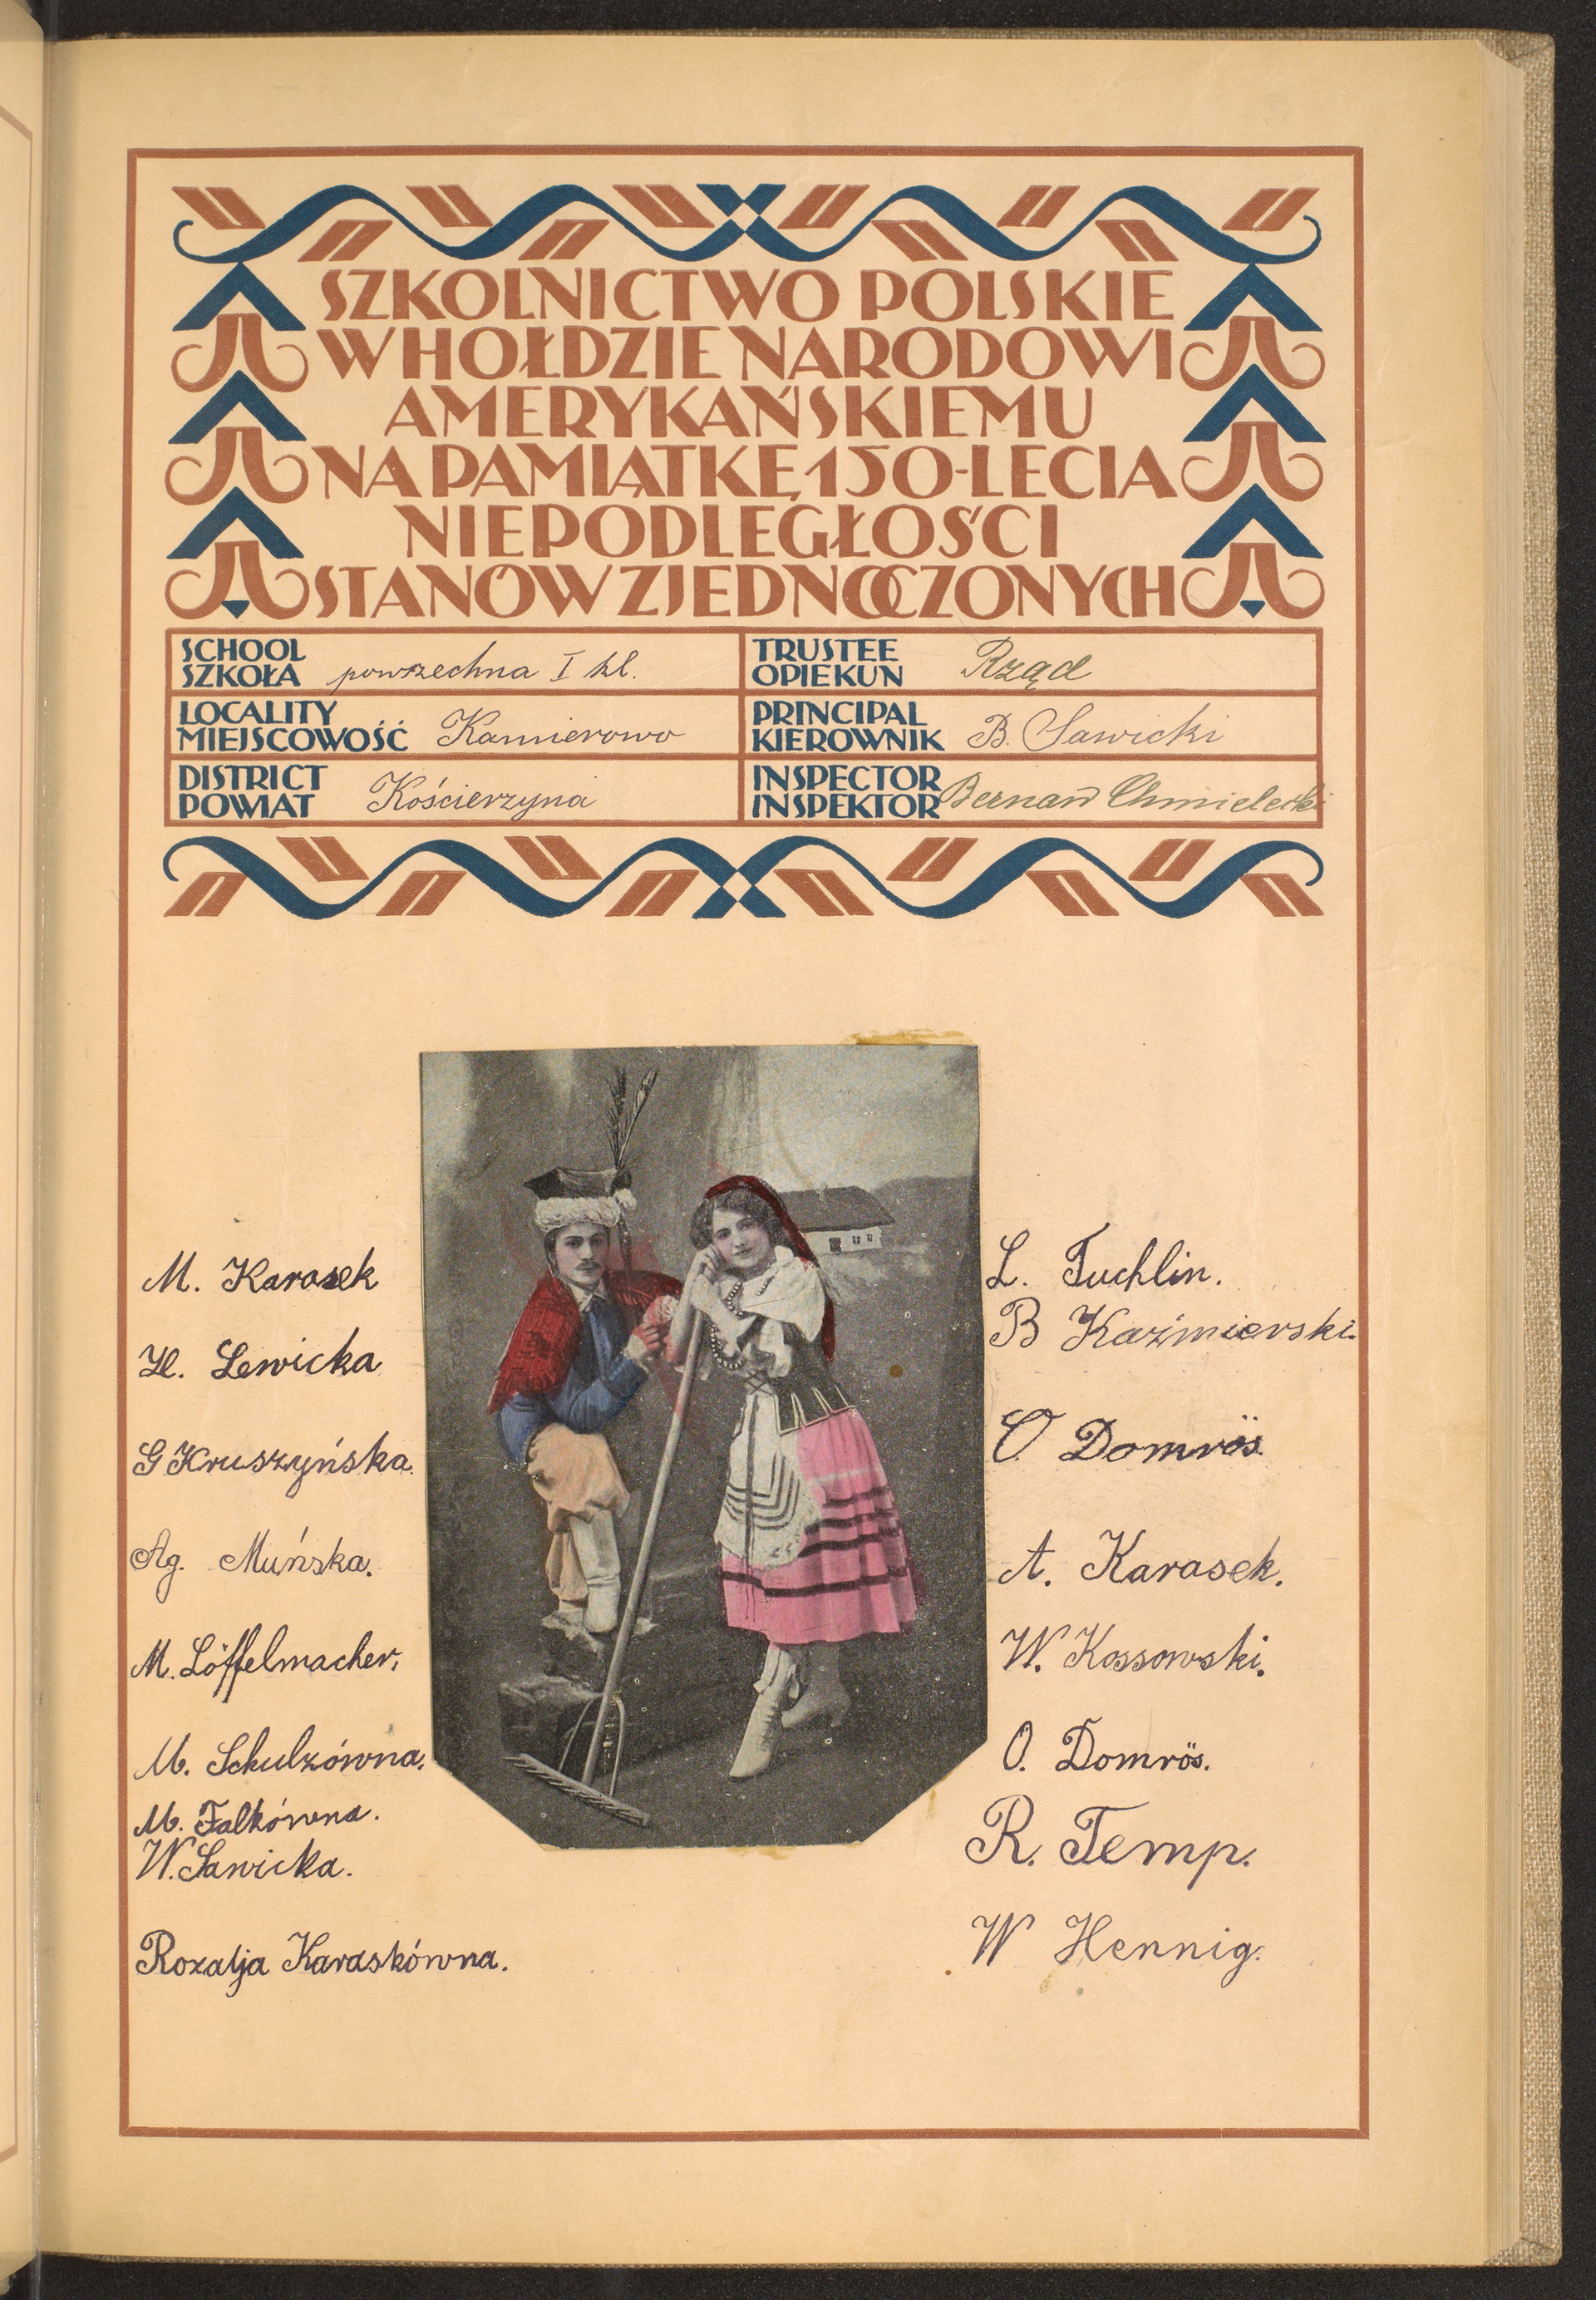 SZKOLNICTWO POLSKIE
W HOŁDZIE NARODOWI
AMERYKAŃSKIEMU
NA PAMIĄTKĘ 150-LECIA
NIEPODLEGŁOŚCI
STANÓW ZJEDNOCZONYCH
SCHOOL
SZKOŁA powszechna I kl.
TRUSTEE
OPIEKUN Rząd
LOCALITY
MIEJSCOWOŚĆ Kamierowo
PRINCIPAL
KIEROWNIK B. Sawicki
DISTRICT
POWIAT Kościerzyna
INSPECTOR
INSPEKTOR Bernard Chmielecki
M. Karasek
H. Lewicka
G Kruszyńska.
Ag. Muńska.
M. Löffelmacher.
M. Schulzówna.
M. Falkówna.
W. Sawicka.
Rozalja Karaskówna.
L. Tuchlin.
B Kaźmierski.
O. Domrös.
A. Karasek.
W. Kossowski.
O. Domrös.
R. Temp.
W Hennig.